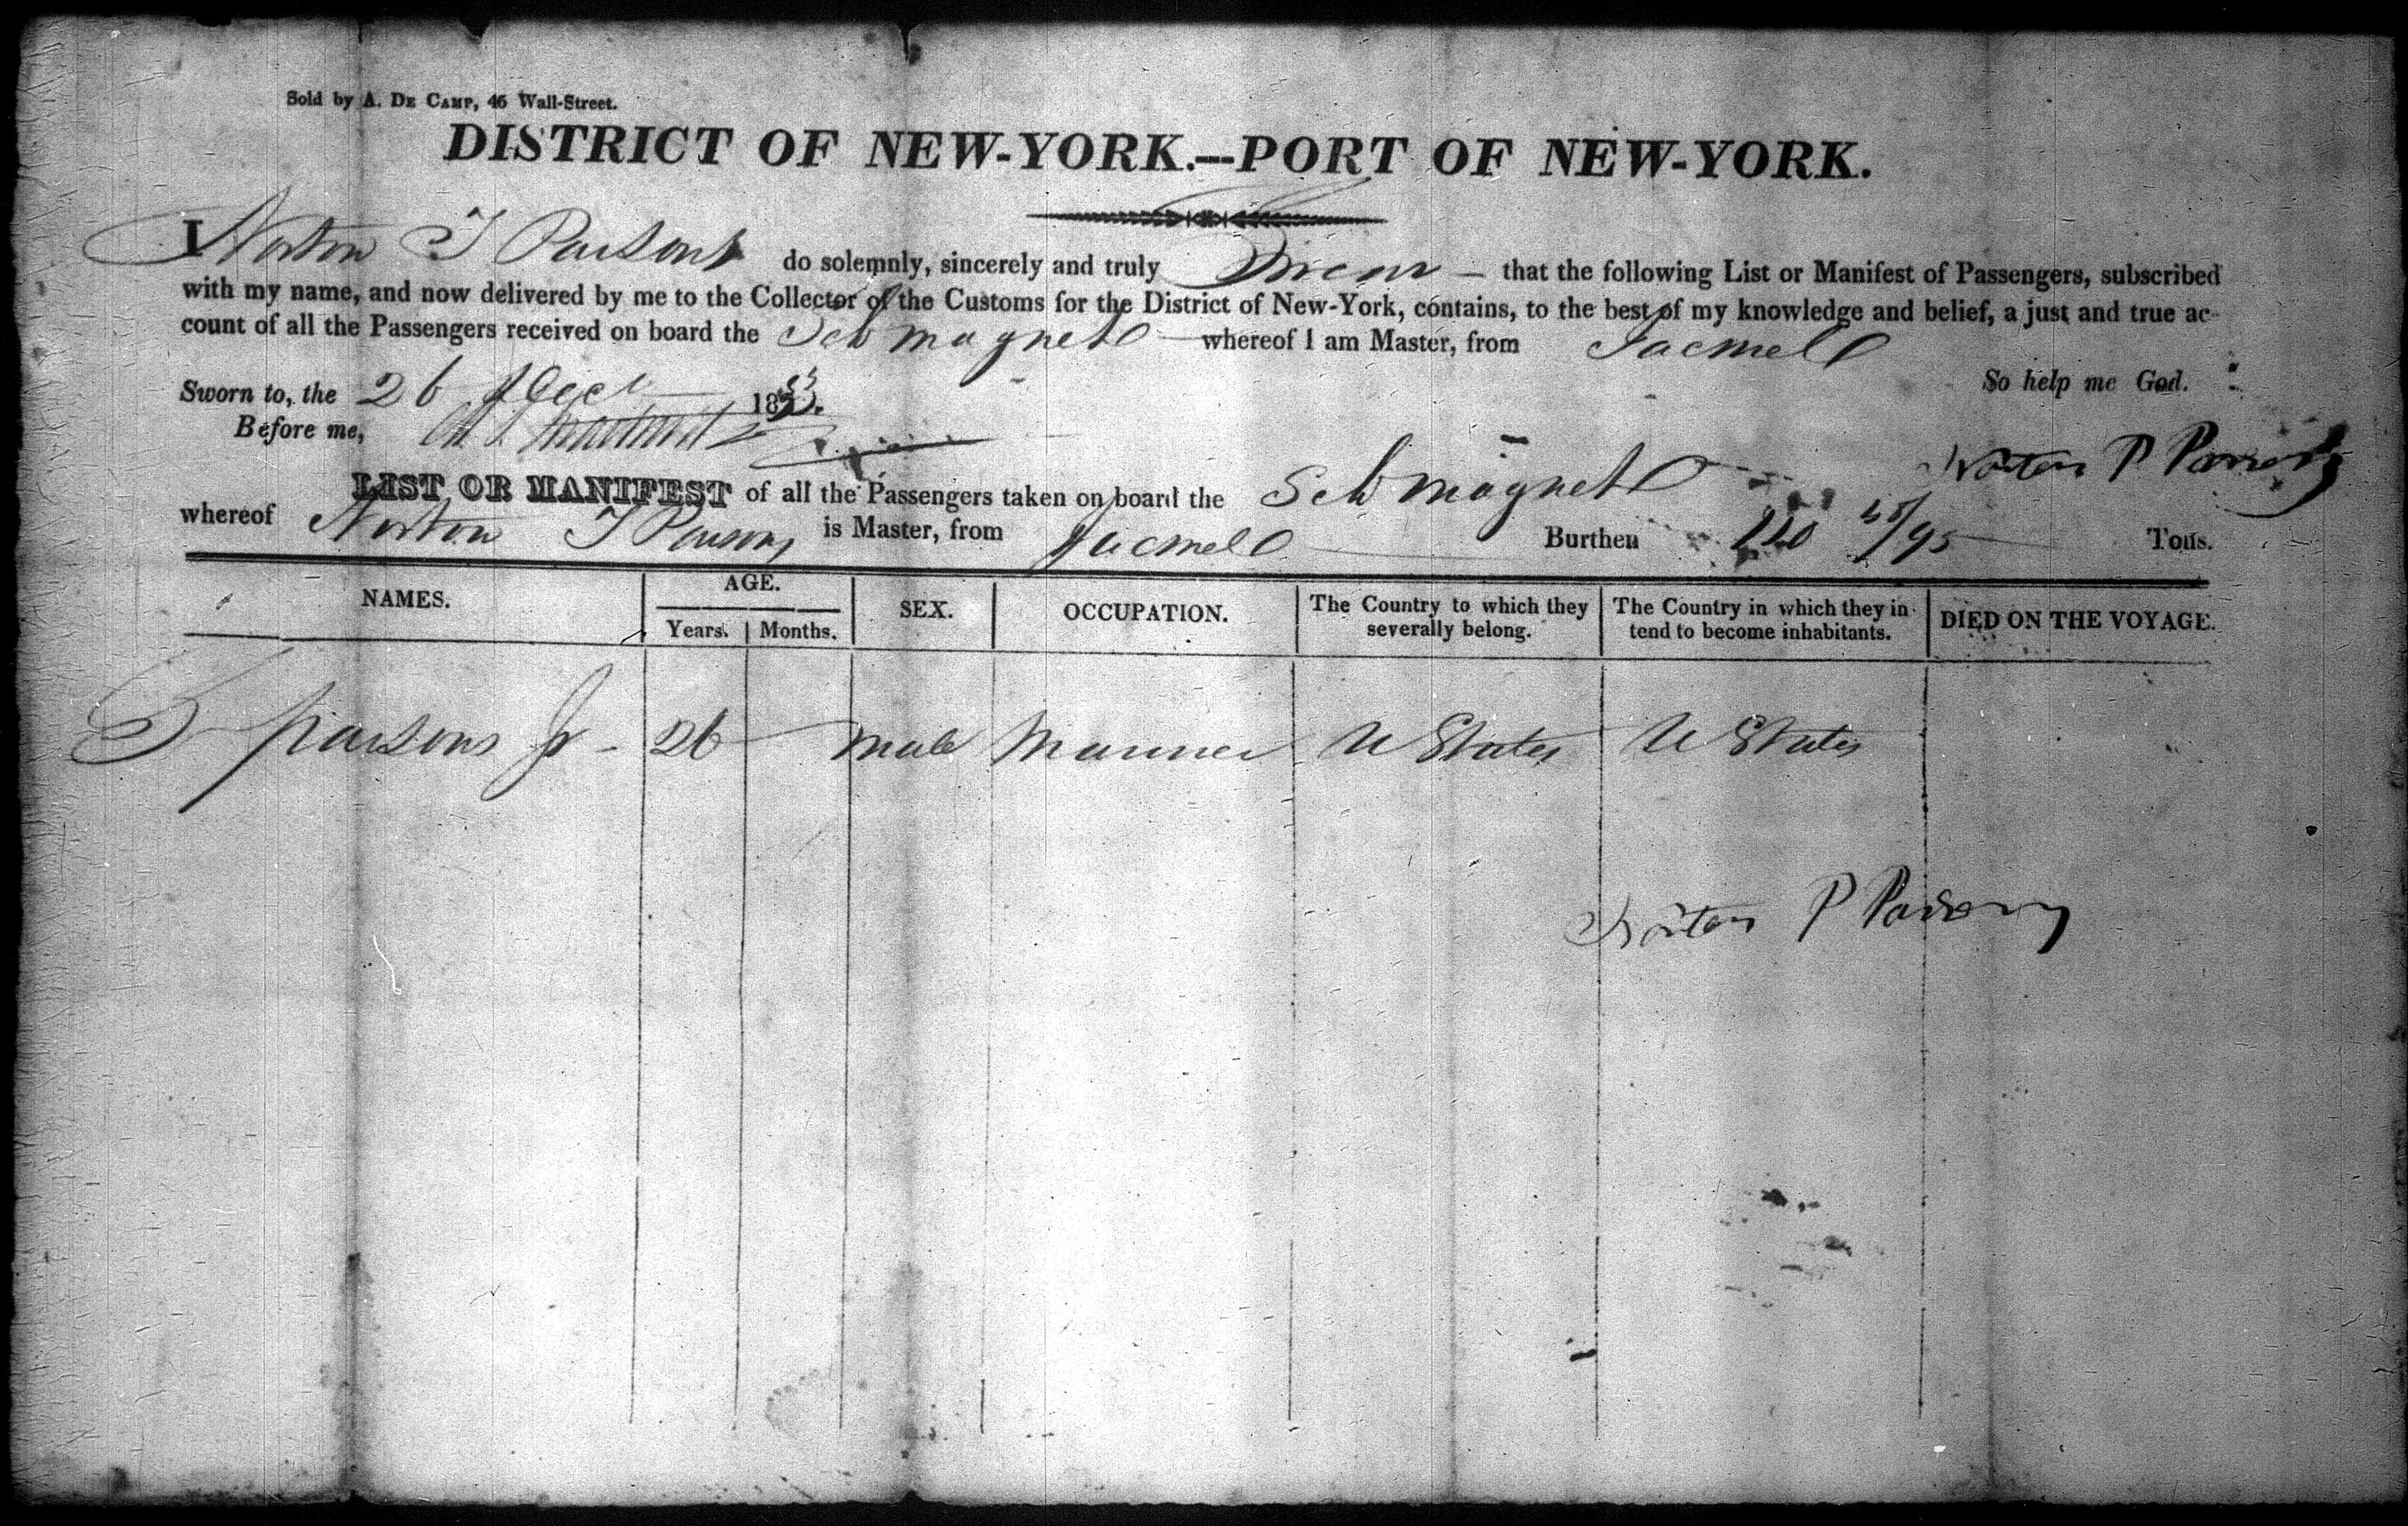 Sold by A. De Camp, 46 Wall-Street.
DISTRICT OF NEW-YORK.—PORT OF NEW-YORK.
I Norton T Parsons do solemnly, sincerely and truly Swear – that the following List or Manifest of Passengers, subscribed
with my name, and now delivered by me to the Collector of the Customs for the District of New-York, contains, to the best of my knowledge and belief, a just and true ac-
count of all the Passengers received on board the Sch Magnet whereof I am Master, from Jacmell
So help me God.
Sworn to, the 26 1833.
Before me,
Norton P Parsons
LIST OR MANIFEST of all the Passengers taken on board the Sch Magnet
whereof Norton T Parsons is Master, from Jacmell Burthen 110 /95 Tons.
NAMES. AGE. Years. Months. SEX. OCCUPATION. The Country to which they severally belong. The Country in which they in-tend to become inhabitants. DIED ON THE VOYAGE.
Parsons Jr - 26 male Mariner U States U States
Norton P Parsons